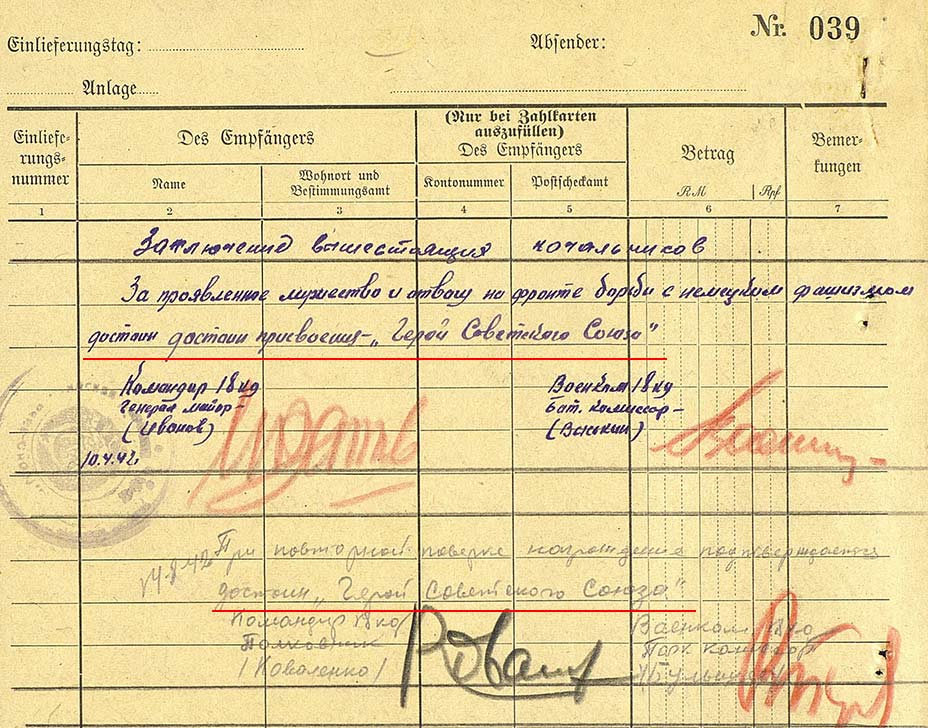 Einlieferungstag:
Absender:
Nr. 039
Anlage
Einliefe-
rungs-
nummer
Des Empfängers
(Nur bei Zahlkarten
auszufüllen)
Des Empfängers
Betrag
Bemer-
kungen
Name
Wohnort und
Bestimmungsamt
Kontonummer
Postscheckamt
RM
Rpf
1 2 3 4 5 6 7
Заключение вышестоящих начальников
За проявленное мужество и отвагу на фронте борьбы с немецким фашизмом
достоин достоин присвоения - „Герой Советского Союза"
Командир 18 кд
Генерал майор -
(Иванов)
10.4.42г
Военком 18 кд
Бат. комиссар -
(Васькин)
При повторной поверке награждения подтверждается
достоин „Герой Советского Союза"
Командир 18 кд
Полковник
(Коваленко)
Военком 18 кд